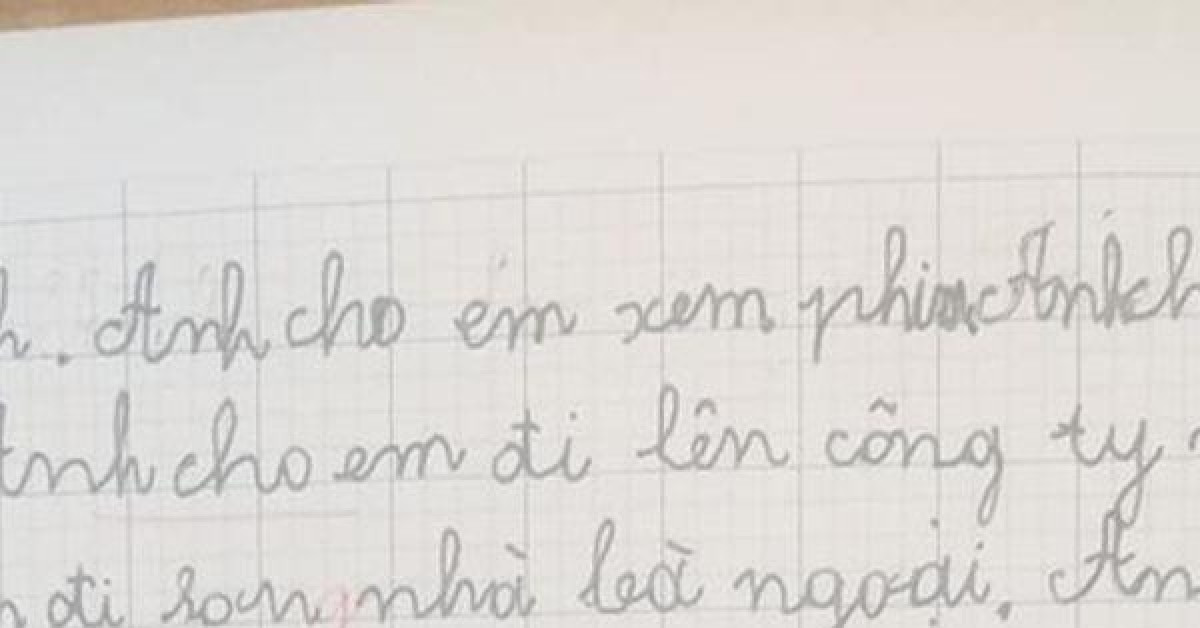 h. Anh cho em xem phim Anh ch
Anh cho em đi lên công ty
đi sang nhà bà ngoại. An